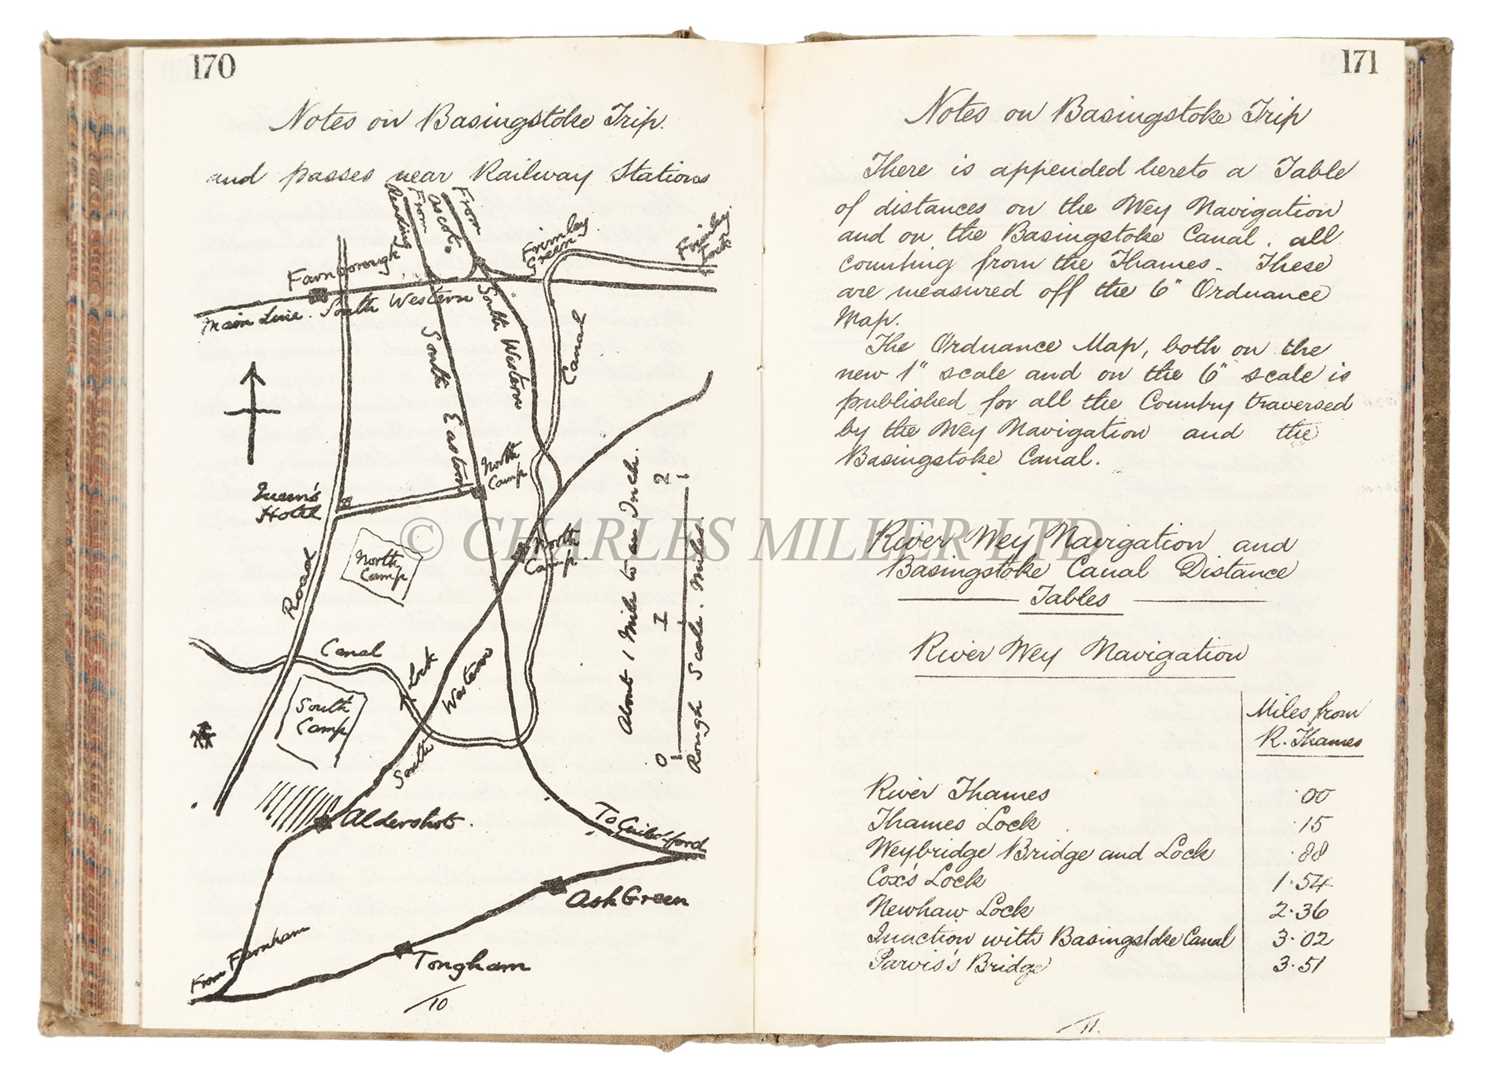 170
Notes on Basingstoke Trip.
and passes near Railway Stations
From Reading
From Ascot
Frimley Green
Frimley Lock
Farnborough
Main Line. South Western
South Eastern
South Western
Canal
Queen's Hotel
North Camp
North Camp
North Camp
Road
Canal
Lock
South Western
South Camp
Aldershot.
To Guildford
Ash Green
Tongham
From Farnham
About 1 Mile to an Inch.
0 1 2
Rough Scale. Miles.
10
171
Notes on Basingstoke Trip
There is appended hereto a Table
of distances on the Wey Navigation
and on the Basingstoke Canal. all
counting from the Thames. These
are measured off the 6" Ordnance
Map.
The Ordnance Map, both on the
new 1" scale and on the 6" scale is
published for all the Country traversed
by the Wey Navigation and the
Basingstoke Canal.
River Wey Navigation and
Basingstoke Canal Distance
Tables
River Wey Navigation
Miles from
R. Thames
River Thames ·00
Thames Lock ·15
Weybridge Bridge and Lock ·88
Cox's Lock 1·54
Newhaw Lock 2·36
Junction with Basingstoke Canal 3·02
Parvis's Bridge 3·51
11.
© CHARLES MILLER LTD